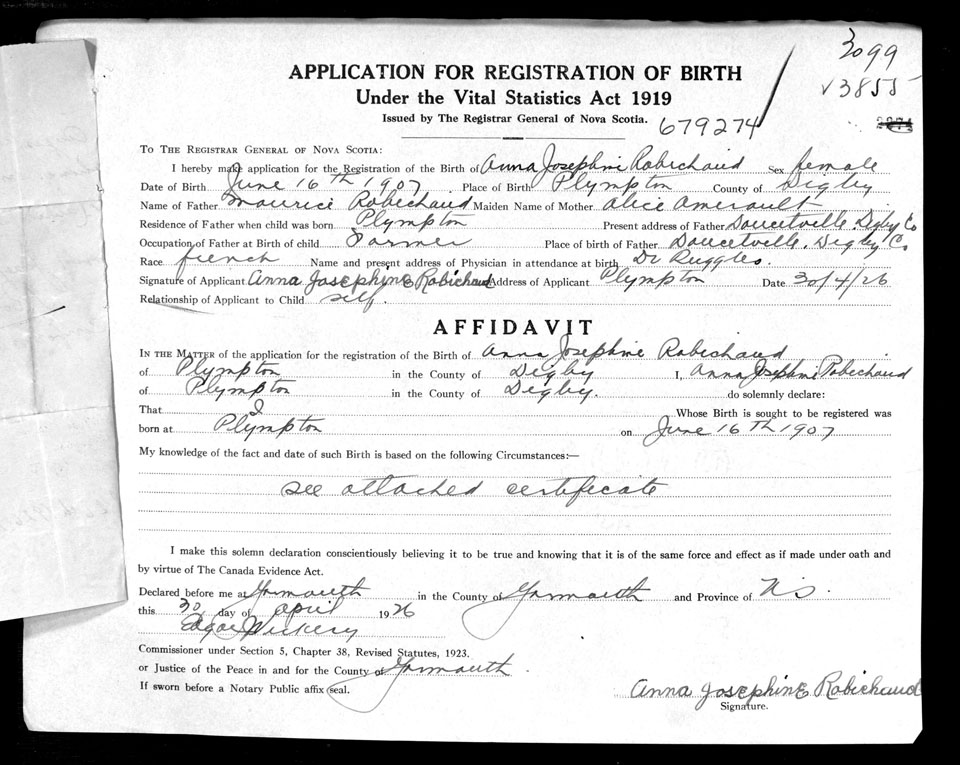 3099
v3855
APPLICATION FOR REGISTRATION OF BIRTH
Under the Vital Statistics Act 1919
Issued by The Registrar General of Nova Scotia. 679274
TO THE REGISTRAR GENERAL OF NOVA SCOTIA:
I hereby make application for the Registration of the Birth of Anna Josephine Robichaud Sex female
Date of Birth June 16th 1907 Place of Birth Plympton County of Digby
Name of Father Maurice Robichaud Maiden Name of Mother Alice Amerault
Residence of Father when child was born Plympton Present address of Father Doucetville, Digby Co
Occupation of Father at Birth of child Farmer Place of birth of Father Doucetville, Digby Co.
Race french Name and present address of Physician in attendance at birth Dr Ruggles.
Signature of Applicant Anna Josephine Robichaud Address of Applicant Plympton Date 30/4/26
Relationship of Applicant to Child self.
AFFIDAVIT
IN THE MATTER of the application for the registration of the Birth of Anna Josephine Robichaud
of Plympton in the County of Digby I, Anna Josephine Robichaud
of Plympton in the County of Digby. do solemnly declare:
That I Whose Birth is sought to be registered was
born at Plympton on June 16th 1907
My knowledge of the fact and date of such Birth is based on the following Circumstances:—
see attached certificate
I make this solemn declaration conscientiously believing it to be true and knowing that it is of the same force and effect as if made under oath and
by virtue of The Canada Evidence Act.
Declared before me at Yarmouth in the County of Yarmouth and Province of N.S.
this 30 day of April 1926
Edgar Vickery
Commissioner under Section 5, Chapter 38, Revised Statutes, 1923.
or Justice of the Peace in and for the County of Yarmouth.
If sworn before a Notary Public affix seal.
Anna Josephine Robichaud
Signature.